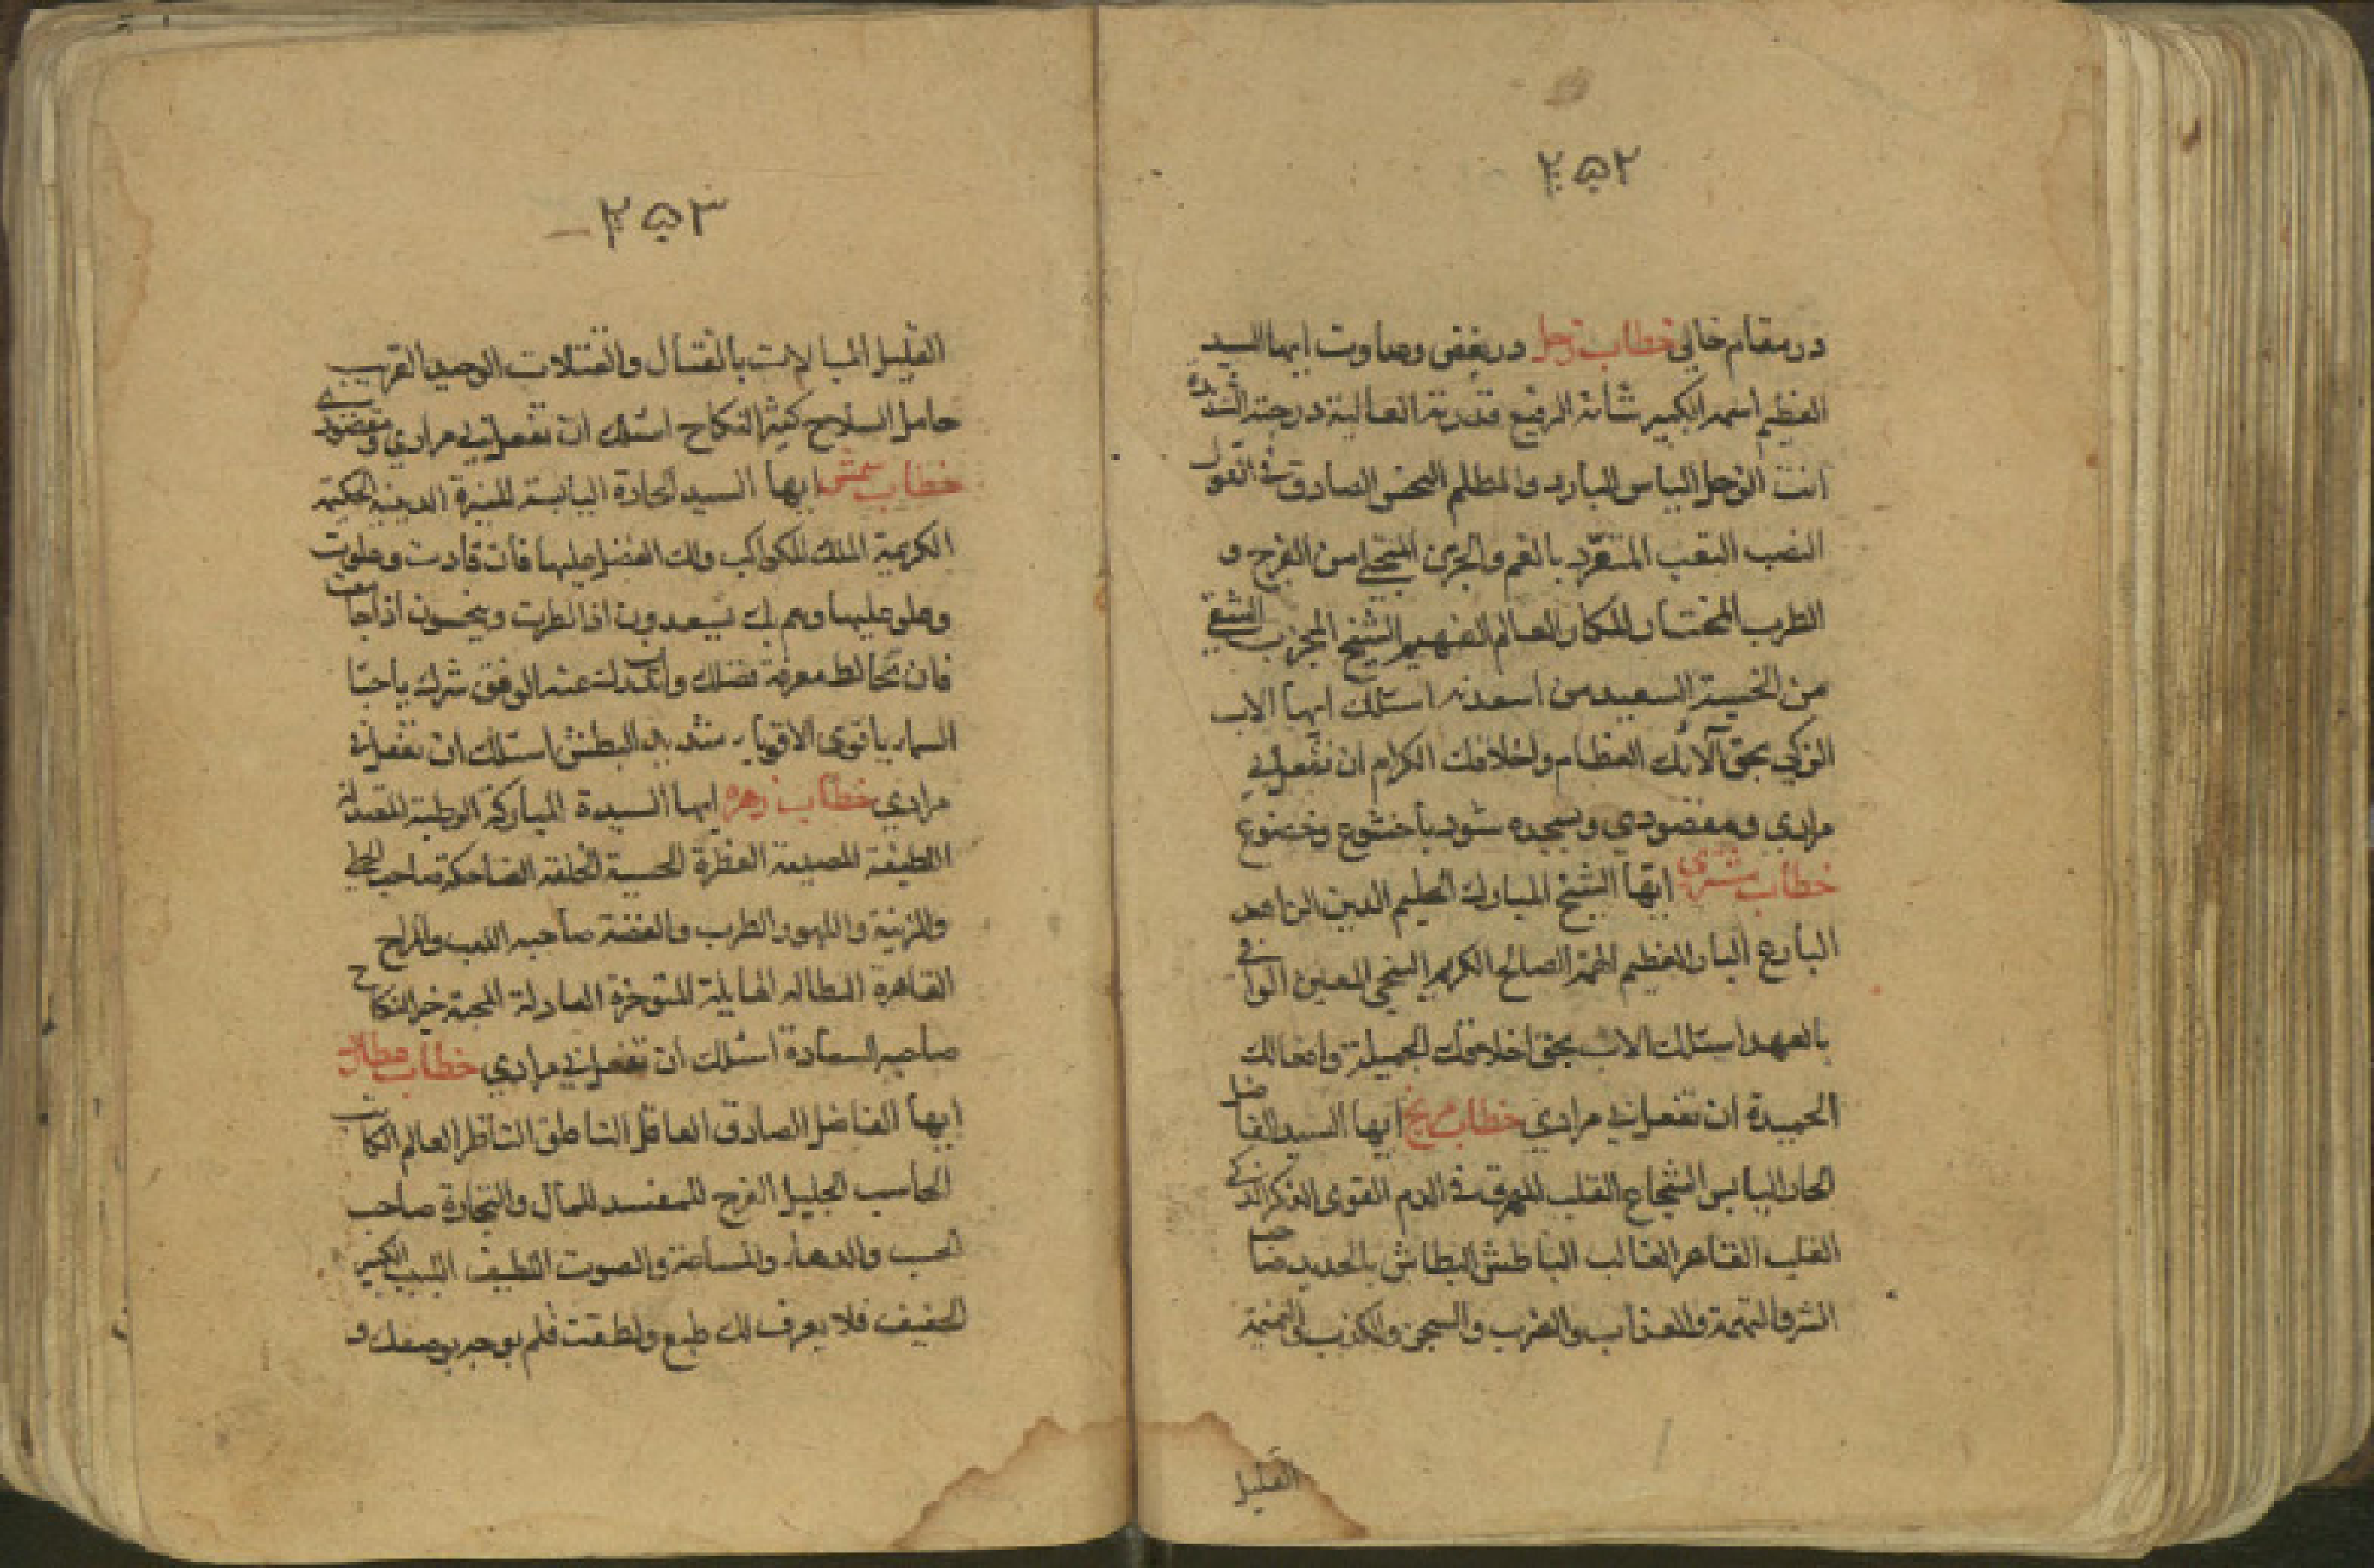 ٢٥٢
در مقام خالی خطاب زحل در بغض وعداوت ايها السيد
العظيم اسمه الكبير شانه الرفيع قدرته العالية درجته الشديدة
انت الزحل البياس البارد والمظلم النحس الصادق في القول
النصب التعب المتفرد بالغم والحزن المتخلي من الفرح و
الطرب المختار المكار العالم الفهيم الشيخ المجرب الشقي
من انحسته السعيد من اسعدته اسئلك ايها الاب
الزكي بحق آلائك العظام واخلاقك الكرام ان تفعل لي
مرادي ومقصودي وبسجده شود باخشوع وخضوع
خطاب مشتری ايها الشيخ المبارك الحليم الدين الزاهد
البارع البار العظيم الهمة الصالح الكريم السخي المعين الوافي
بالعهد اسئلك الاب بحق اخلاقك الجميلة وافعالك
الحميدة ان تفعل لي مرادي خطاب مريخ ايها السيد الفاضل
الحار اليابس الشجاع القلب المهرق في الدم القوى الذكر الذكي
الغلب القاهر الغالب الباطش البطاش بالحديد صاحب
الشر والتهمة والعذاب والضرب والسجن والكذب والنميمة
القليل
٢٥٣
القليل المبالات بالقتال والقتلات الوحيد القريب
حامل السلاح كثير النكاح اسئلك ان تفعل لي مرادي ومقصودي
خطاب شمس ايها السيد الحارة اليابسة المنيرة الدينية الحكيمة
الكريمة الملك الكواكب ولك الفضل عليها فان قادت وعلوت
وعلو عليها وهم لك يسعدون اذا نظرت وينحسون اذا جامعت
فان تخالط معرفة فضلك واتكدلت عنه الوفق شرك ياحبتا
السماء يا قوى الاقوياء شديد البطش اسئلك ان تفعل لي
مرادي خطاب زهره ايها السيدة المباركة الرطبة المعتدلة
اللطيفة العطرة الحسية الخلقة الضاحكة صاحب الحلي
والزينة واللهو والطرب والفضة صاحبه اللعب والمزاح
القاهرة العادلة المحبة خير النكاح
صاحبه السعادة اسئلك ان تفعل لي مرادي خطاب عطارد
ايها الفاضل الصادق العاقل الناطق الناظر العالم الكاتب
الحاسب الجليل الفرح المفسد للمال والتجارة صاحب
الحسب والدهاء والمساعة والصوت اللطيف اللبيب الكبير
الخفيف فلا يعرف لك طبع ولطفت فلم يوجد بوصفك و